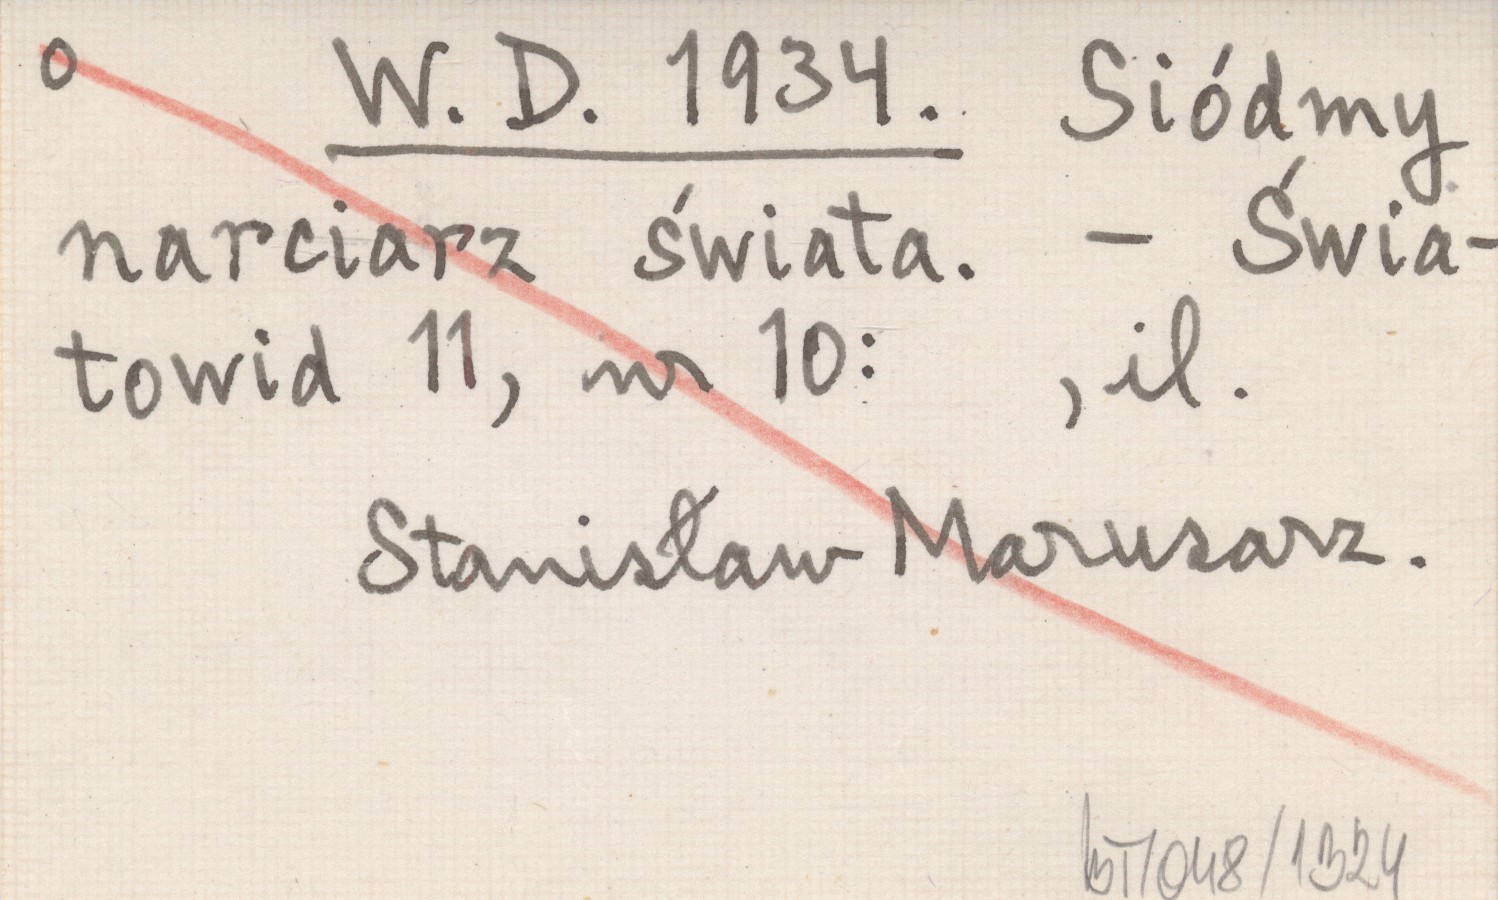 o W. D. 1934. Siódmy
narciarz świata. – Świa-
towid 11, nr 10: , il.
Stanisław Marusarz.
/048/1324